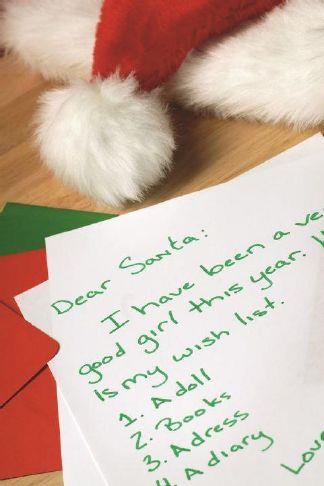 Dear Santa:
I have been a ve
good girl this year.
Is my wish list.
1. A doll
2. Books
3. A dress
4. A diary
Love